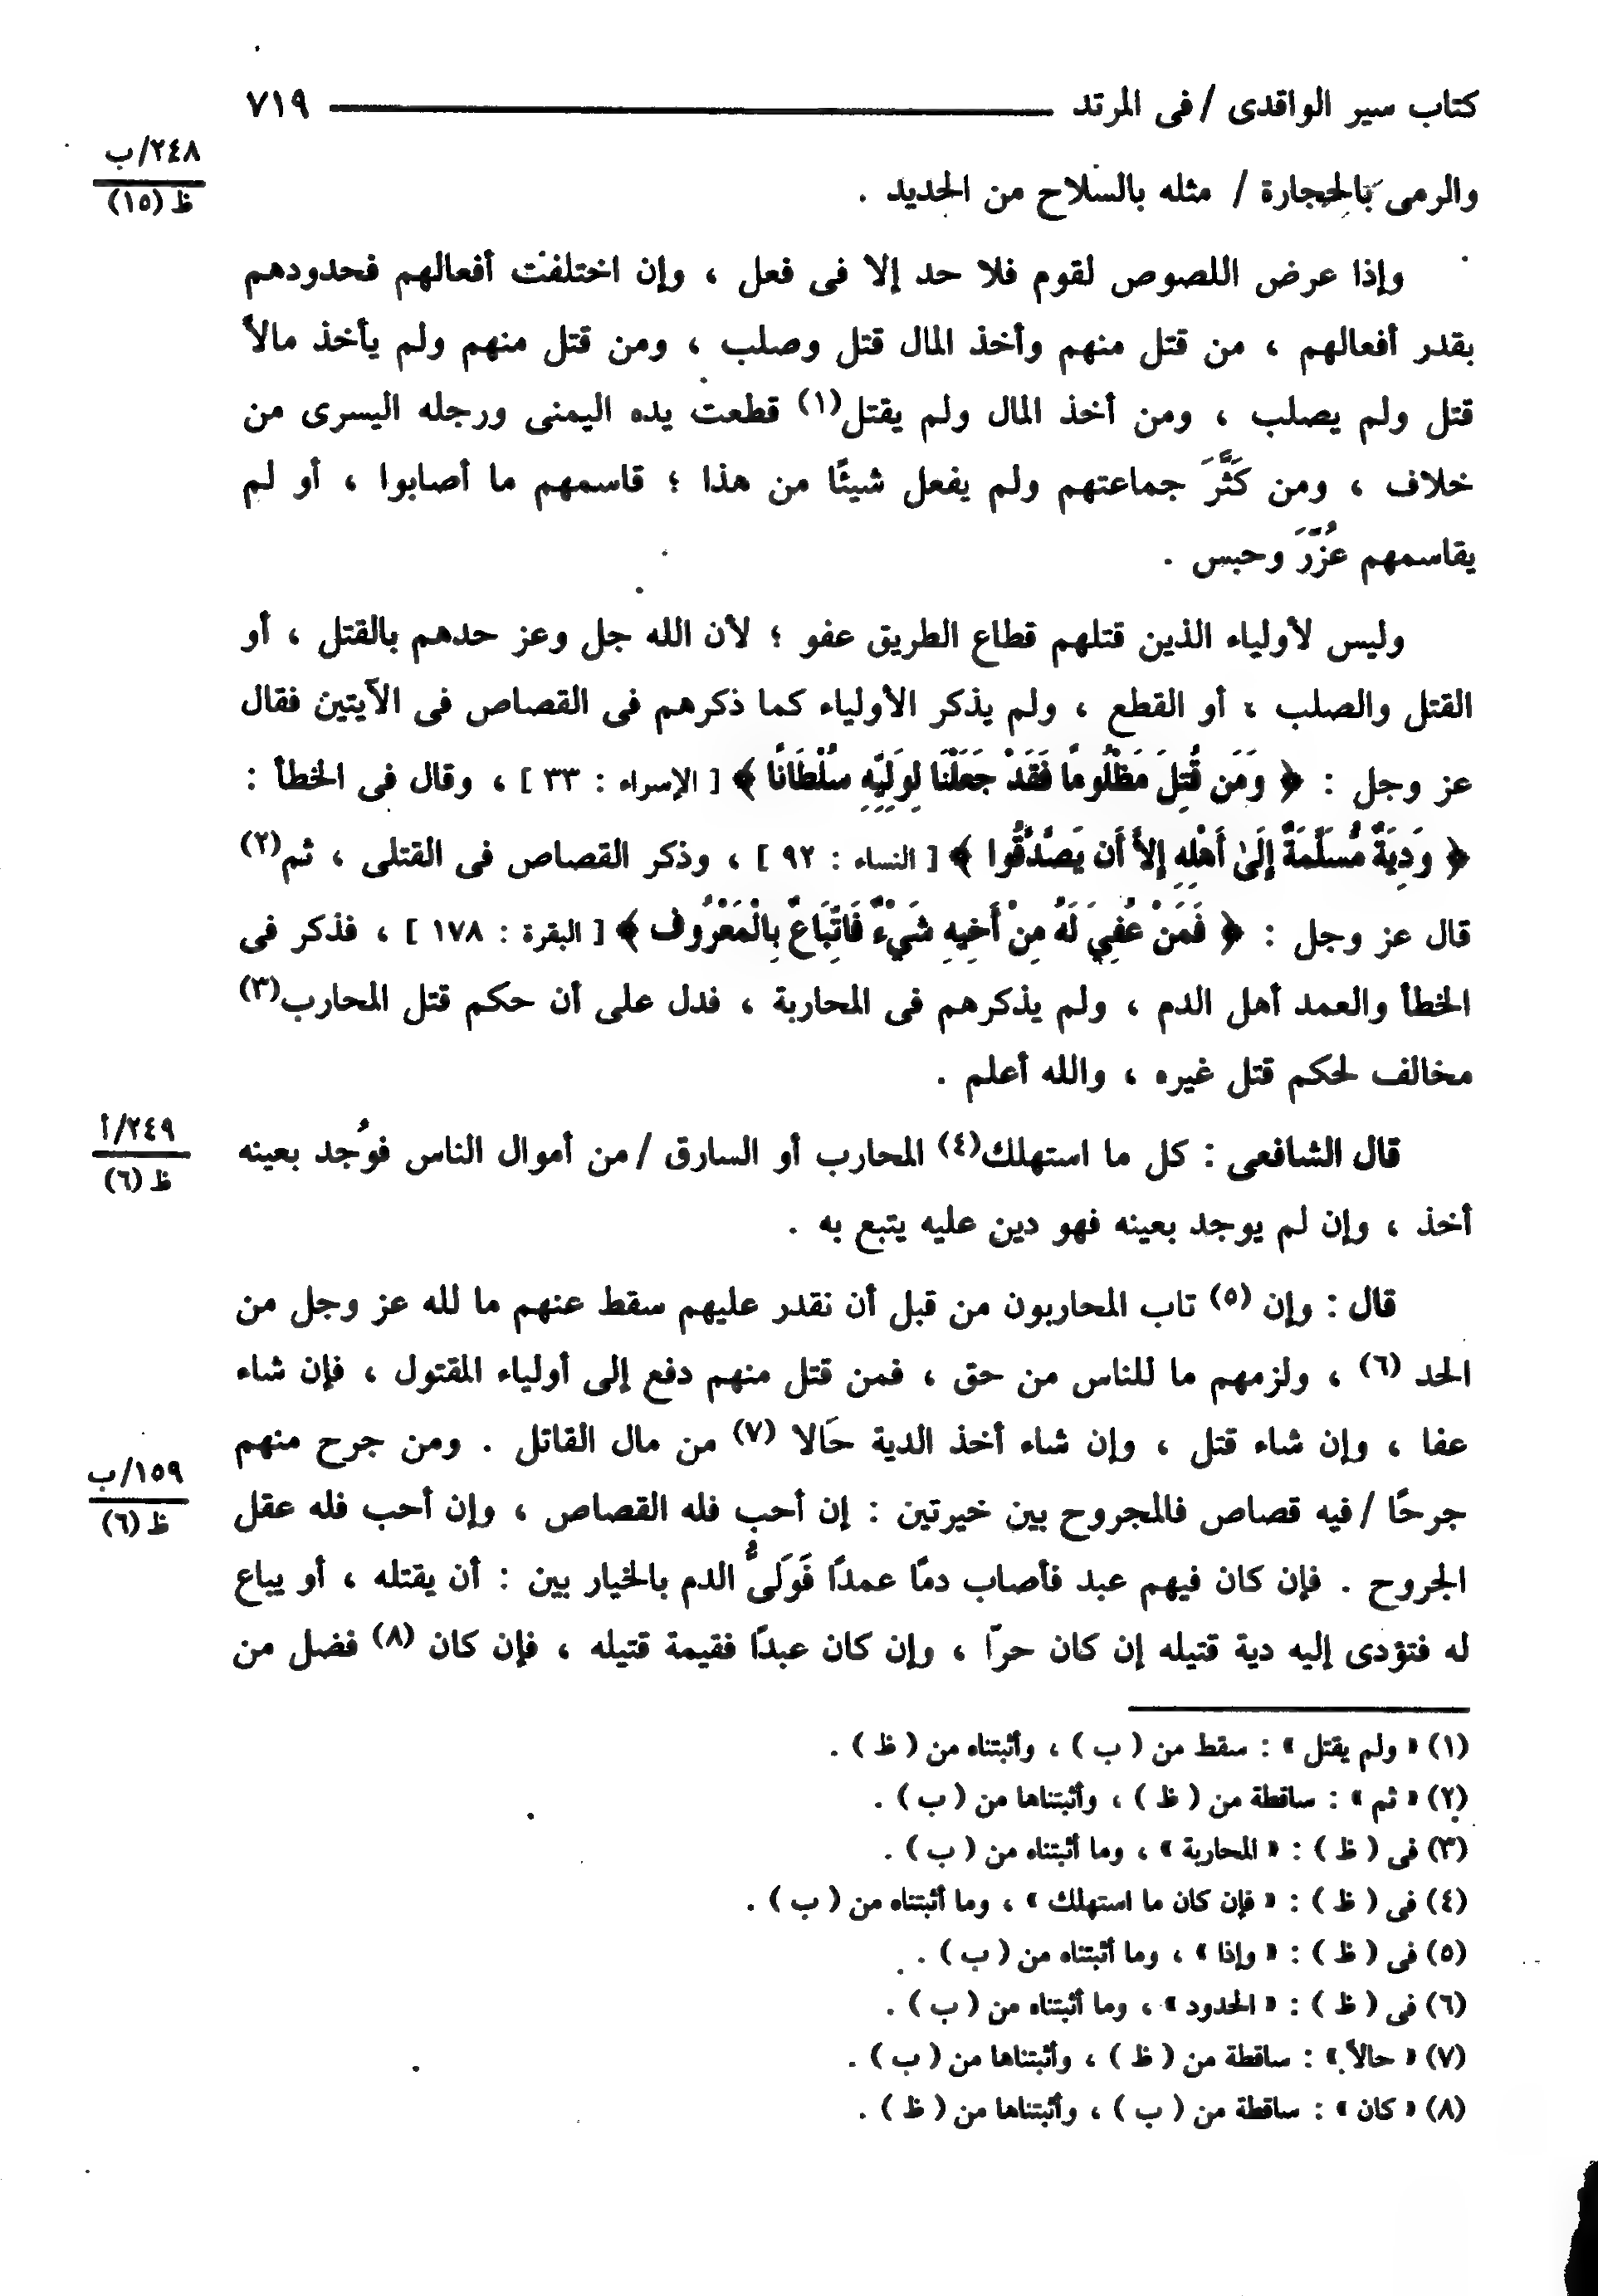 كتاب سير الواقدى / فى المرتد ٧١٩
٢٤٨/ب
ظ (١٥)
والرمى بالحجارة / مثله بالسلاح من الحديد .
وإذا عرض اللصوص لقوم فلا حد إلا فى فعل ، وإن اختلفت أفعالهم فحدودهم
بقدر أفعالهم ، من قتل منهم وأخذ المال قتل وصلب ، ومن قتل منهم ولم يأخذ مالاً
قتل ولم يصلب ، ومن أخذ المال ولم يقتل(١) قطعت يده اليمنى ورجله اليسرى من
خلاف ، ومن كَثَّرَ جماعتهم ولم يفعل شيئًا من هذا ؛ قاسمهم ما أصابوا ، أو لم
يقاسمهم عُزِّرَ وحبس .
وليس لأولياء الذين قتلهم قطاع الطريق عفو ؛ لأن الله جل وعز حدهم بالقتل ، أو
القتل والصلب ، أو القطع ، ولم يذكر الأولياء كما ذكرهم فى القصاص فى الآيتين فقال
عز وجل : ﴿ وَمَن قُتِلَ مَظْلُومًا فَقَدْ جَعَلْنَا لِوَلِيِّهِ سُلْطَانًا ﴾ [ الإسراء : ٣٣ ] ، وقال فى الخطأ :
﴿ وَدِيَةٌ مُّسَلَّمَةٌ إِلَىٰ أَهْلِهِ إِلاَّ أَن يَصَّدَّقُوا ﴾ [ النساء : ٩٢ ] ، وذكر القصاص فى القتلى ، ثم(٢)
قال عز وجل : ﴿ فَمَنْ عُفِيَ لَهُ مِنْ أَخِيهِ شَيْءٌ فَاتِّبَاعٌ بِالْمَعْرُوفِ ﴾ [ البقرة : ١٧٨ ] ، فذكر فى
الخطأ والعمد أهل الدم ، ولم يذكرهم فى المحاربة ، فدل على أن حكم قتل المحارب(٣)
مخالف لحكم قتل غيره ، والله أعلم .
٢٤٩/أ
ظ (٦)
قال الشافعى : كل ما استهلك(٤) المحارب أو السارق / من أموال الناس فوُجد بعينه
أخذ ، وإن لم يوجد بعينه فهو دين عليه يتبع به .
قال : وإن (٥) تاب المحاربون من قبل أن نقدر عليهم سقط عنهم ما لله عز وجل من
الحد (٦) ، ولزمهم ما للناس من حق ، فمن قتل منهم دفع إلى أولياء المقتول ، فإن شاء
عفا ، وإن شاء قتل ، وإن شاء أخذ الدية حَالا (٧) من مال القاتل . ومن جرح منهم
١٥٩/ب
ظ (٦)
جرحًا / فيه قصاص فالمجروح بين خيرتين : إن أحب فله القصاص ، وإن أحب فله عقل
الجروح . فإن كان فيهم عبد فأصاب دمًا عمدًا فَوَلَىُّ الدم بالخيار بين : أن يقتله ، أو يباع
له فتؤدى إليه دية قتيله إن كان حرّا ، وإن كان عبدًا فقيمة قتيله ، فإن كان (٨) فضل من
(١) « ولم يقتل » : سقط من ( ب ) ، وأثبتناه من ( ظ ) .
(٢) « ثم » : ساقطة من ( ظ ) ، وأثبتناها من ( ب ) .
(٣) فى ( ظ ) : « المحاربة » ، وما أثبتناه من ( ب ) .
(٤) فى ( ظ ) : « فإن كان ما استهلك » ، وما أثبتناه من ( ب ) .
(٥) فى ( ظ ) : « وإذا » ، وما أثبتناه من ( ب ) .
(٦) فى ( ظ ) : « الحدود » ، وما أثبتناه من ( ب ) .
(٧) « حالاً » : ساقطة من ( ظ ) ، وأثبتناها من ( ب ) .
(٨) « كان » : ساقطة من ( ب ) ، وأثبتناها من ( ظ ) .